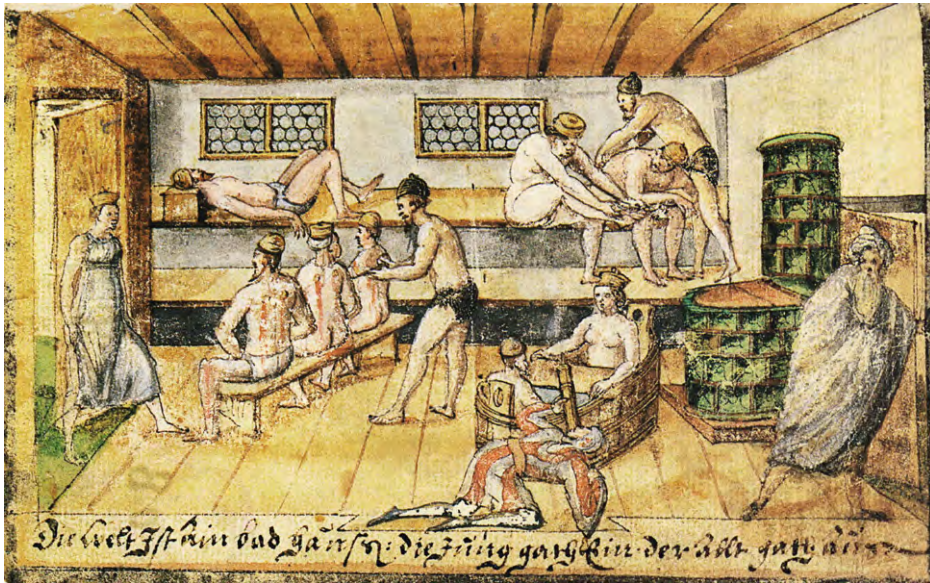 Die Welt Ist Ain bad hauſ : die Jung gath Ein · der Allt gath auſ